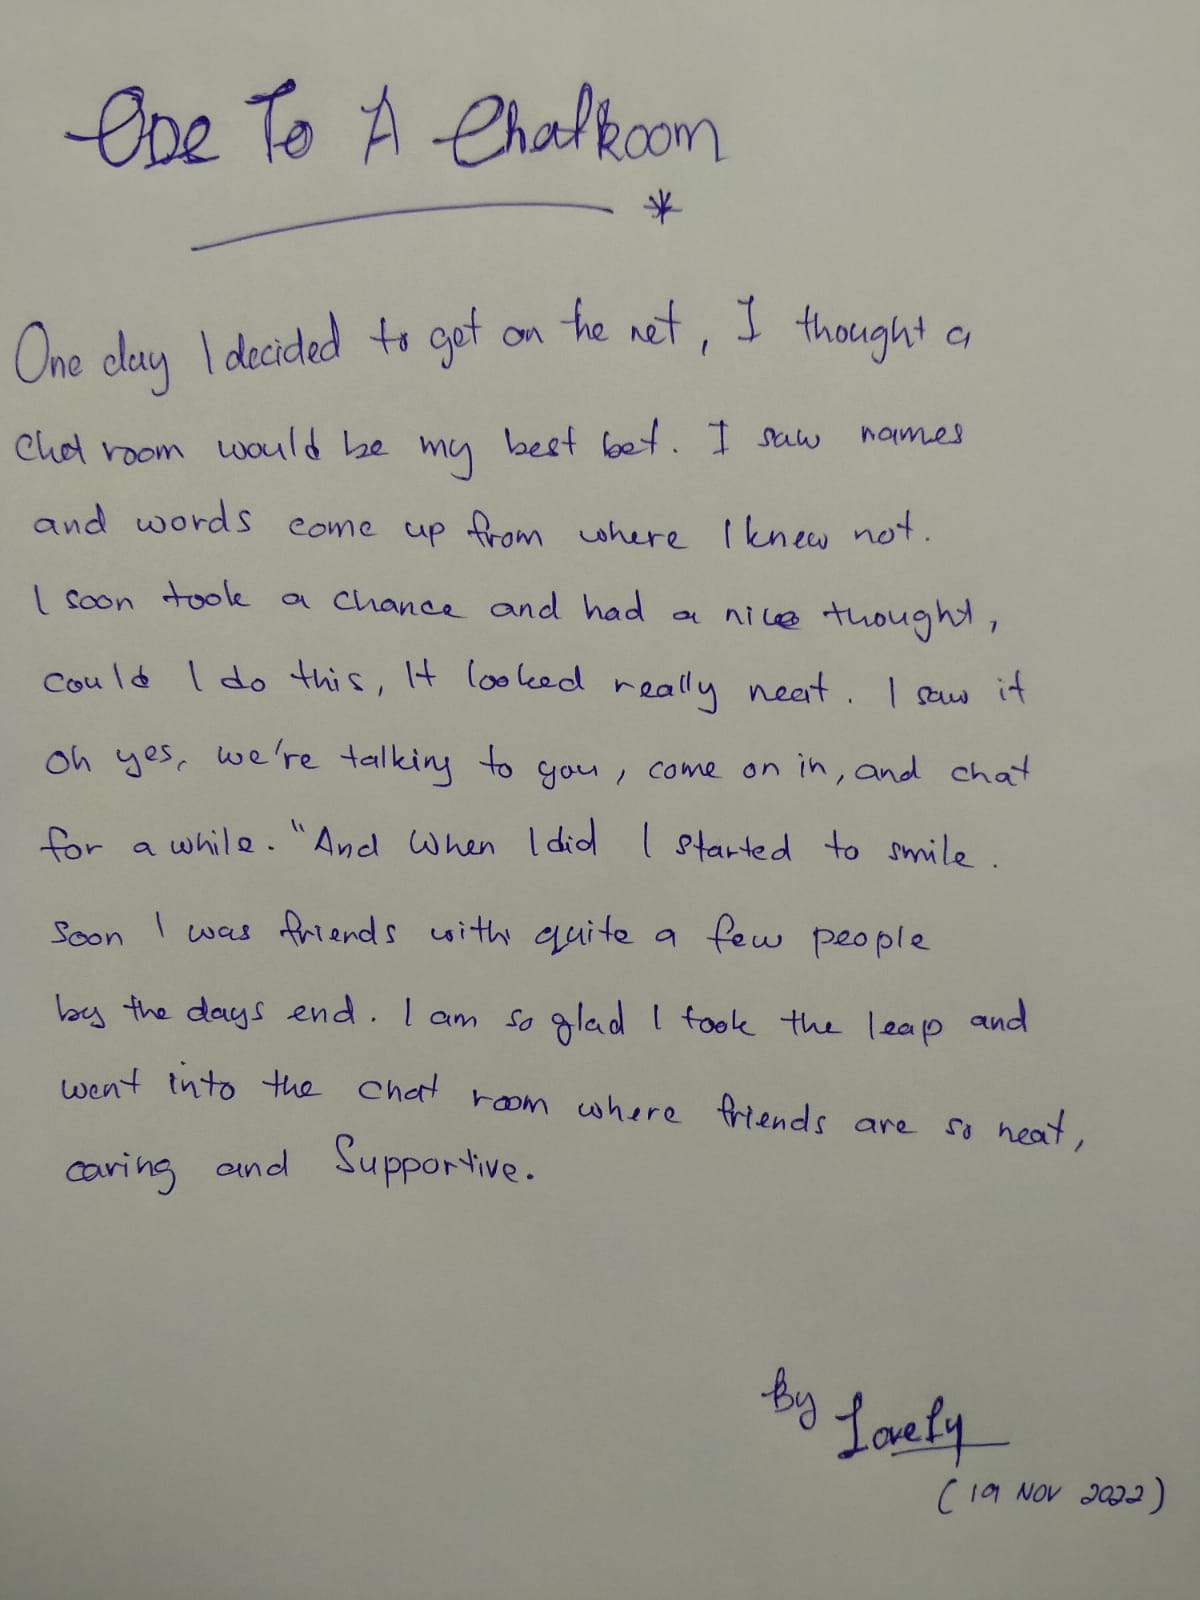 Ode To A ChatRoom
*
One day I decided to get on the net, I thought a
Chat room would be my best bet. I saw names
and words come up from where I knew not.
I soon took a chance and had a nice thought,
could I do this, It looked really neat. I saw it
oh yes, we're talking to you, come on in, and chat
for a while. "And When I did I started to smile.
Soon I was friends with quite a few people
by the days end. I am so glad I took the leap and
went into the chat room where friends are so neat,
caring and Supportive.
By Lovely
(19 NOV 2022)